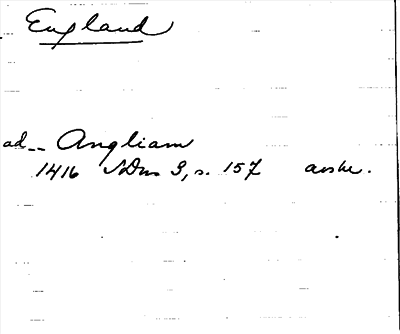 England
ad -- Angliam
1416 SDns 3, s. 157 avskr.